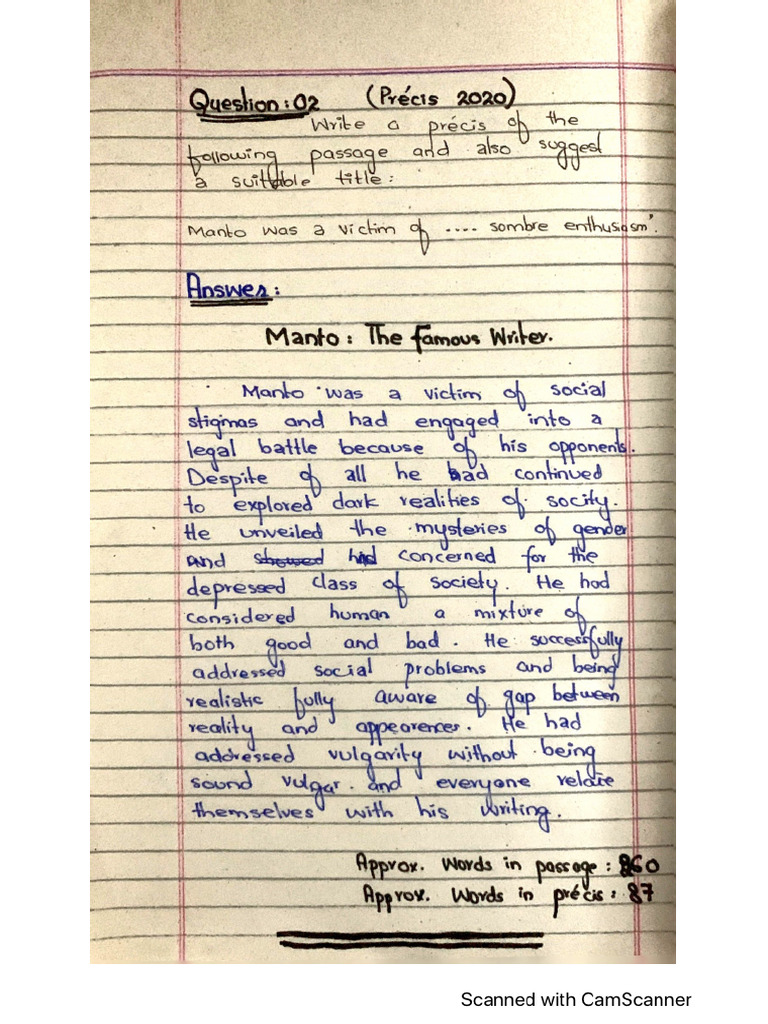 Question: 02 (Précis 2020)
Write a précis of the
following passage and also suggest
a suitable title:
Manto was a victim of .... sombre enthusiasm'.
Answer:
Manto: The famous Writer.
Manto was a victim of social
stigmas and had engaged into a
legal battle because of his opponents.
Despite of all he had continued
to explored dark realities of socity.
He unveiled the mysteries of gender
and showed had concerned for the
depressed class of society. He had
considered human a mixture of
both good and bad. He successfully
addressed social problems and being
realistic fully aware of gap between
reality and appearences. He had
addressed vulgarity without being
sound vulgar. and everyone relate
themselves with his writing.
Approx. Words in passage: 260
Approx. Words in précis: 87
Scanned with CamScanner